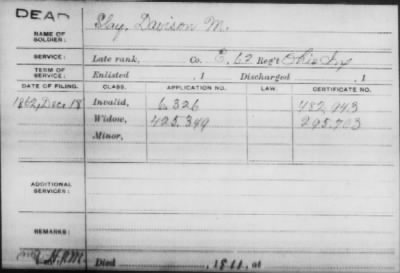 DEAD
NAME OF SOLDIER: Clay, Davison M.
SERVICE: Late rank, Co. E, 62 Reg't Ohio Inf
TERM OF SERVICE: Enlisted , 1 Discharged , 1
DATE OF FILING. CLASS. APPLICATION NO. LAW. CERTIFICATE NO.
1862, Dec 18 Invalid, 6.326 482.943
Widow, 425.349 295.703
Minor,
ADDITIONAL SERVICES:
REMARKS:
Died , 18 , at